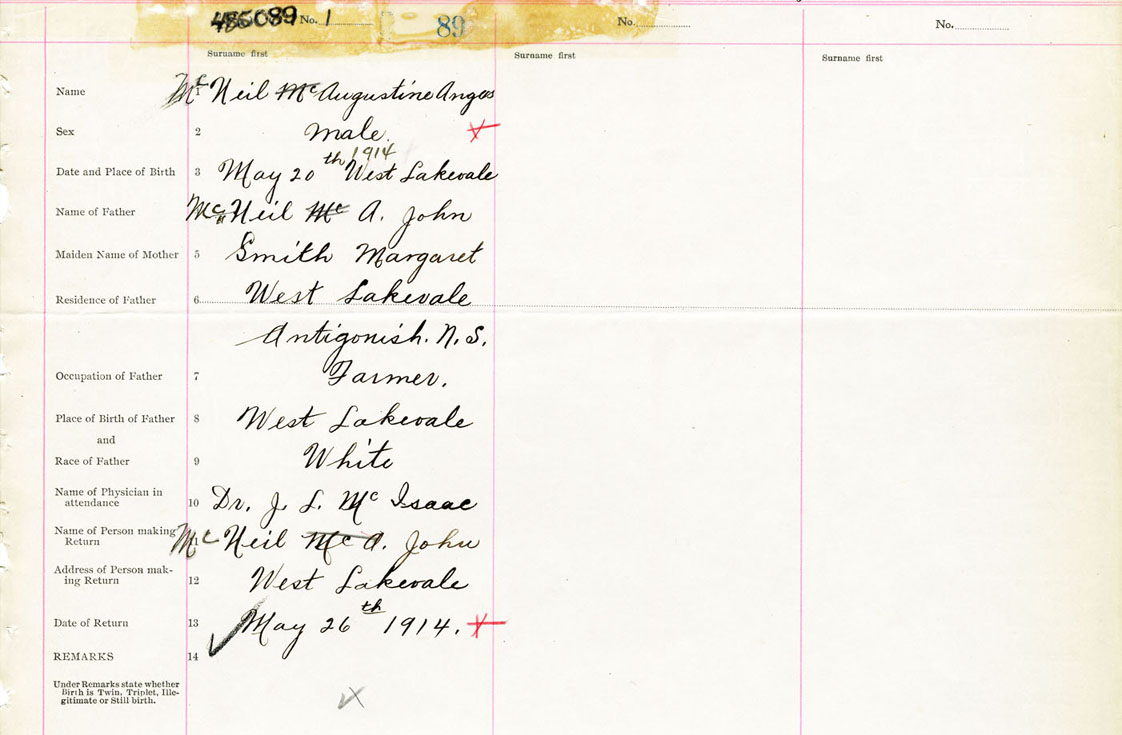 486089 No. 1 89 No. No.
Surname first Surname first Surname first
Name 1 Mc Neil Mc Augustine Angus
Sex 2 Male.
1914
Date and Place of Birth 3 May 20th West Lakevale
Name of Father Mc Neil Mc A. John
Maiden Name of Mother 5 Smith Margaret
Residence of Father 6 West Lakevale
Antigonish. N.S.
Occupation of Father 7 Farmer.
Place of Birth of Father 8 West Lakevale
and
Race of Father 9 White
Name of Physician in
attendance 10 Dr. J. L. Mc Isaac
Name of Person making
Return 11 Mc Neil Mc A. John
Address of Person mak-
ing Return 12 West Lakevale
Date of Return 13 May 26th 1914.
REMARKS 14
Under Remarks state whether
Birth is Twin, Triplet, Ille-
gitimate or Still birth.